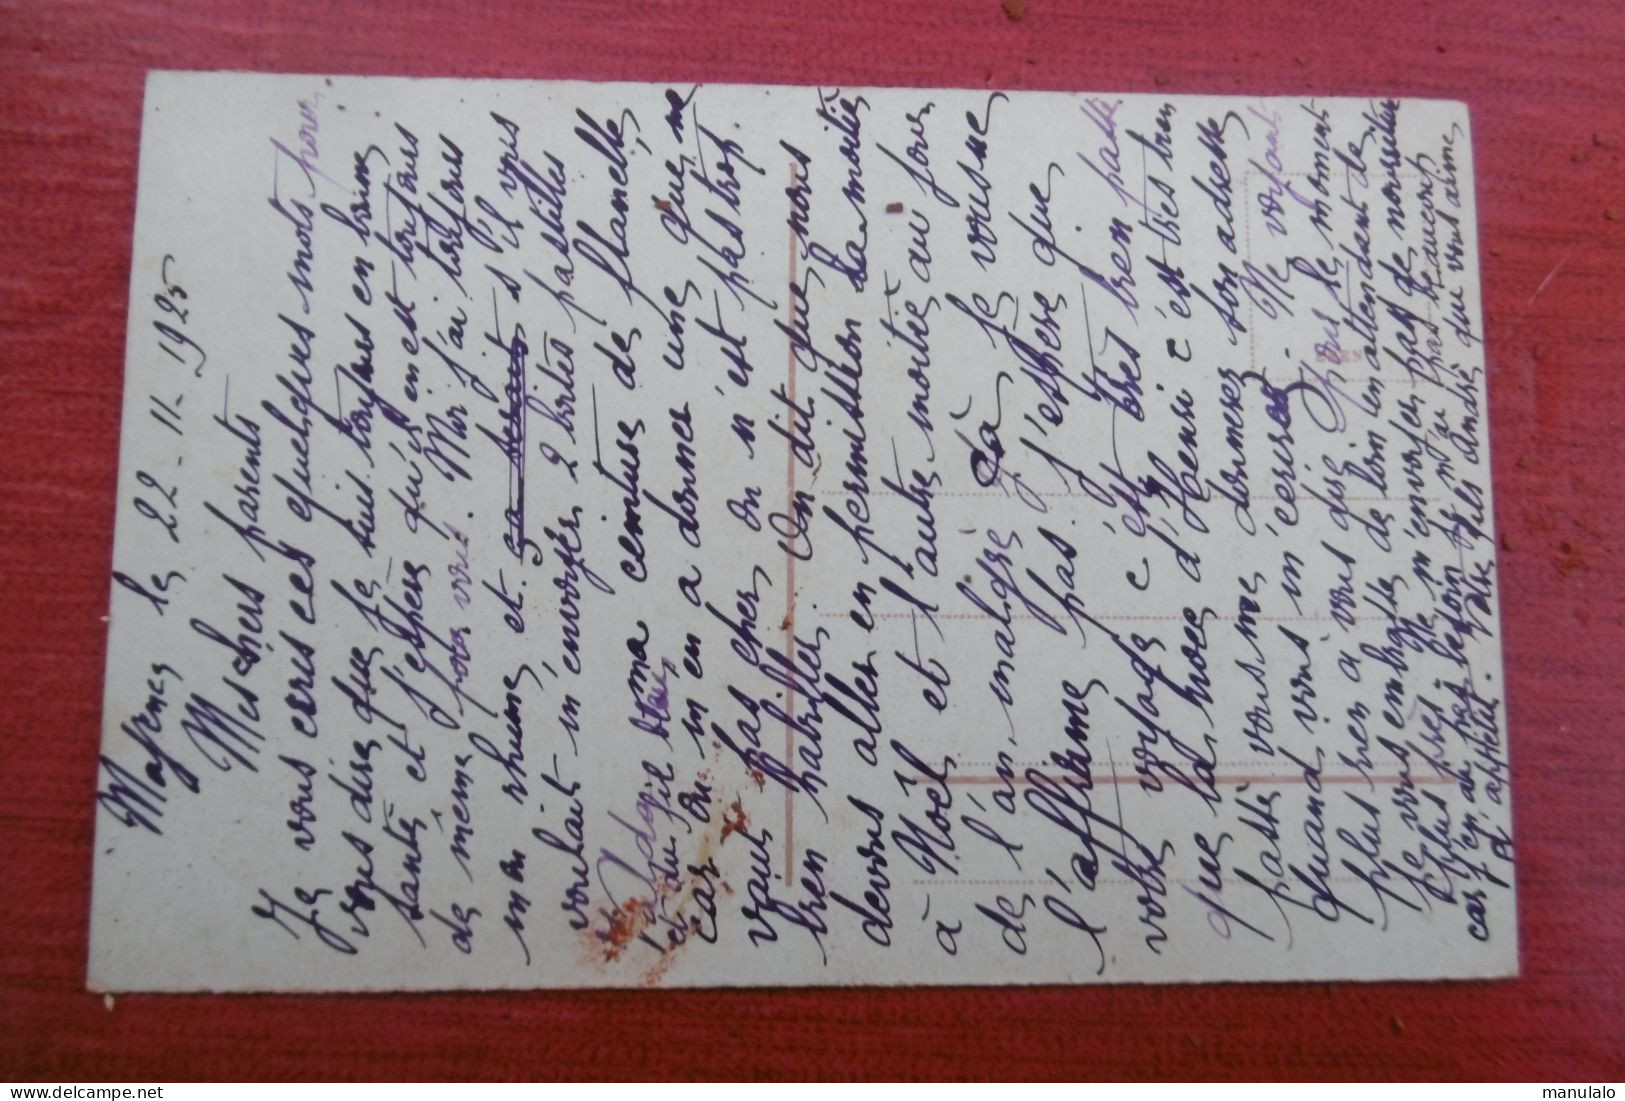 Mayence le 22-11-1925
Mes chers parents
Je vous ecris ces quelques mots pour
vous dire que je suis toujours en bonne
santé et j'espère qu'il en est toujours
de même pour vous. Moi j'ai toujours
mon rhume et ça serait s'il vous
voulait m'envoyer 2 boites pastilles
valda
et du fil bleu ma ceinture de flanelle,
car on m'en a donné une que ne
vaut pas cher, on n'est pas trop
bien habiller. On dit que nous
devons aller en permission la moitié
à Noël et l'autre moitié au jour
de l'an, malgré ça je vous ne
l'affirme pas. J'espère que
votre voyage c'est très bien passé
que la noce d'Henri c'est très bien
passé vous me donnerez son adresse
quand vous m'ecrirez. Ne voyant
plus rien à vous dire pour le moment
je vous embrasse de loin en attendant de
plus près. Ne m'envoyez pas de nourriture
car j'en ai pas besoin
Votre fils André qui vous aime